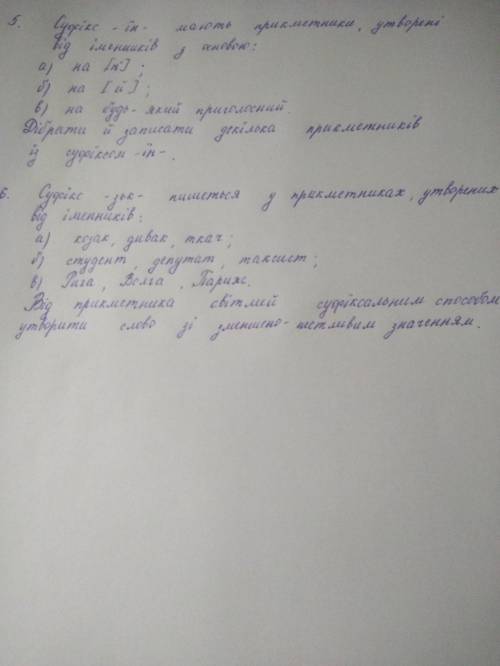 5. Суфікс -їн- мають прикметники, утворені
від іменників з основою:
а) на [н];
б) на [й];
в) на будь-який приголосний.
Дібрати й записати декілька прикметників
із суфіксом -їн-.
6. Суфікс -зьк- пишеться у прикметниках, утворених
від іменників:
а) козак, дивак, ткач;
б) студент, депутат, таксист;
в) Рига, Волга, Париж.
Від прикметника світлий суфіксальним способом
утворити слово зі зменшено-пестливим значенням.